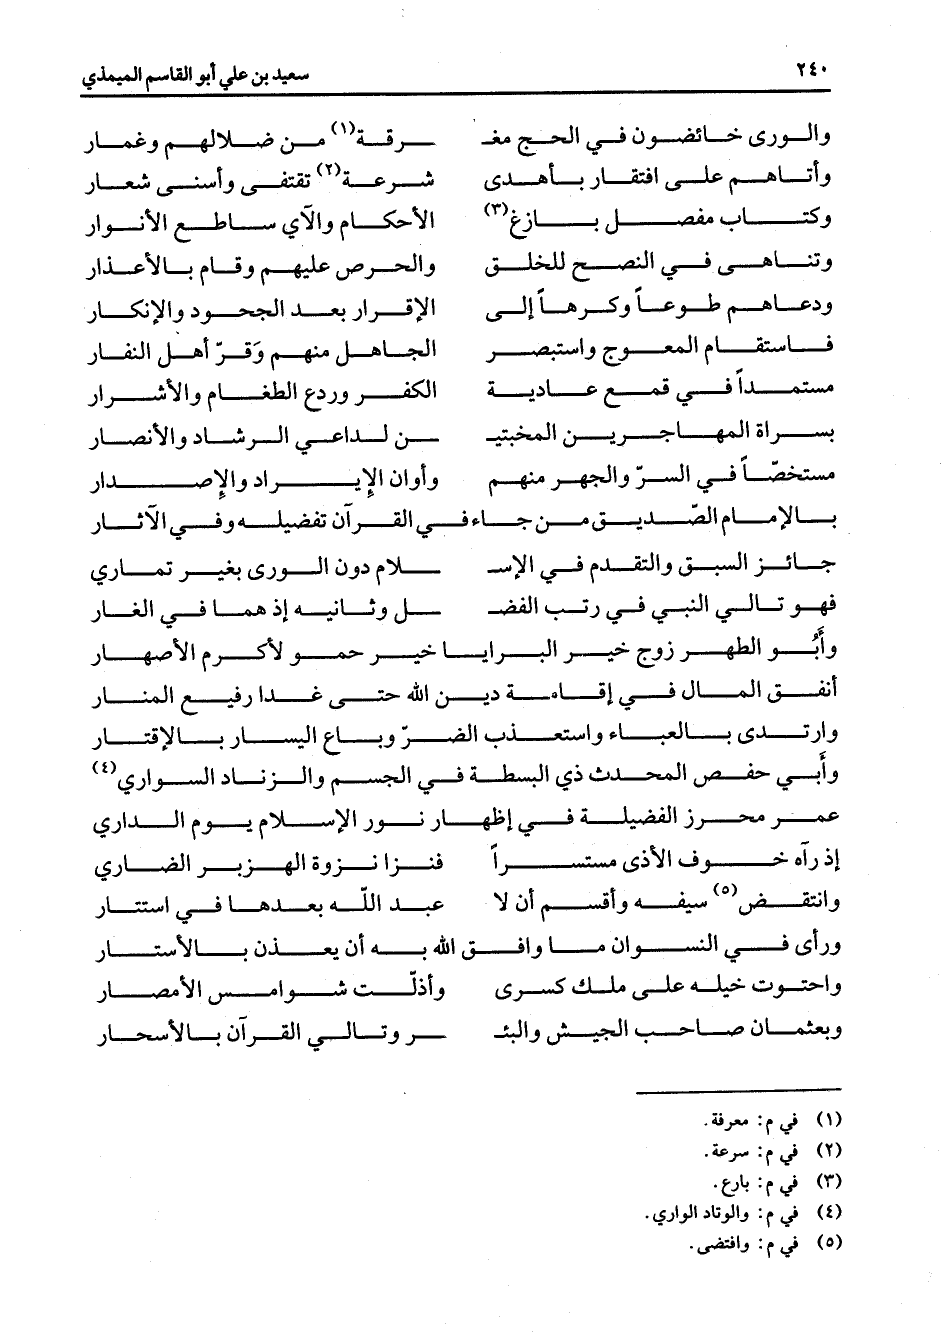 ٢٤٠ سعيد بن علي أبو القاسم الميمذي
والورى خائضون في الحج مغـ ـرقة(١) من ضلالهم وغمار
وأتاهم على افتقار بأهدى شرعة(٢) تقتفى وأسنى شعار
وكتاب مفصل بازغ(٣) الأحكام والآي ساطع الأنوار
وتناهى في النصح للخلق والحرص عليهم وقام بالأعذار
ودعاهم طوعاً وكرهاً إلى الإقرار بعد الجحود والإنكار
فاستقام المعوج واستبصر الجاهل منهم وَقرّ أهل النفار
مستمداً في قمع عادية الكفر وردع الطغام والأشرار
بسراة المهاجرين المخبتيـ ـن لداعي الرشاد والأنصار
مستخصّاً في السرّ والجهر منهم وأوان الإيراد والإصدار
بالإمام الصّديق من جاء في القرآن تفضيله وفي الآثار
جائز السبق والتقدم في الإسـ ـلام دون الورى بغير تماري
فهو تالي النبي في رتب الفضـ ـل وثانيه إذ هما في الغار
وأَبُو الطهر زوج خير البرايا خير حمو لأكرم الأصهار
أنفق المال في إقامة دين الله حتى غدا رفيع المنار
وارتدى بالعباء واستعذب الضرّ وباع اليسار بالإقتار
وأَبي حفص المحدث ذي البسطة في الجسم والزناد السواري(٤)
عمر محرز الفضيلة في إظهار نور الإسلام يوم الداري
إذ رآه خوف الأذى مستسراً فنزا نزوة الهزبر الضاري
وانتقض(٥) سيفه وأقسم أن لا عبد اللّه بعدها في استتار
ورأى في النسوان ما وافق الله به أن يعذن بالأستار
واحتوت خيله على ملك كسرى وأذلّت شوامس الأمصار
وبعثمان صاحب الجيش والبئـ ـر وتالي القرآن بالأسحار
(١) في م: معرفة.
(٢) في م: سرعة.
(٣) في م: بارع.
(٤) في م: والوتاد الواري.
(٥) في م: وافتضى.